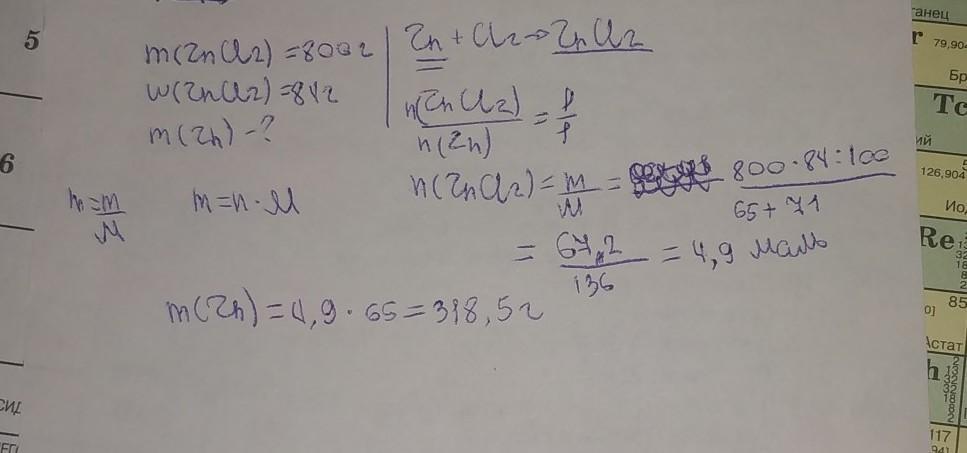 5
6
m(ZnCl2) = 800г
w(ZnCl2) = 84г
m(Zn) - ?
Zn + Cl2 → ZnCl2
n(ZnCl2)
n(Zn)
= 1/1
n = m/M
m = n · M
n(ZnCl2) = m/M =
800 · 84 : 100
65 + 71
= 67,2/136 = 4,9 моль
m(Zn) = 4,9 · 65 = 318,5г
ганец
r 79,904
Бр
Tc
ий
126,904
Ио
Re
85
Астат
h
117